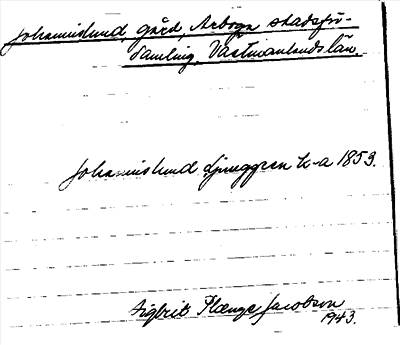 Johannislund, gård, Arboga stadsför-
samling, Västmanlands län.
Johannislund Ljunggren k-a 1853.
Sigbrit Plænge Jacobson
1943.